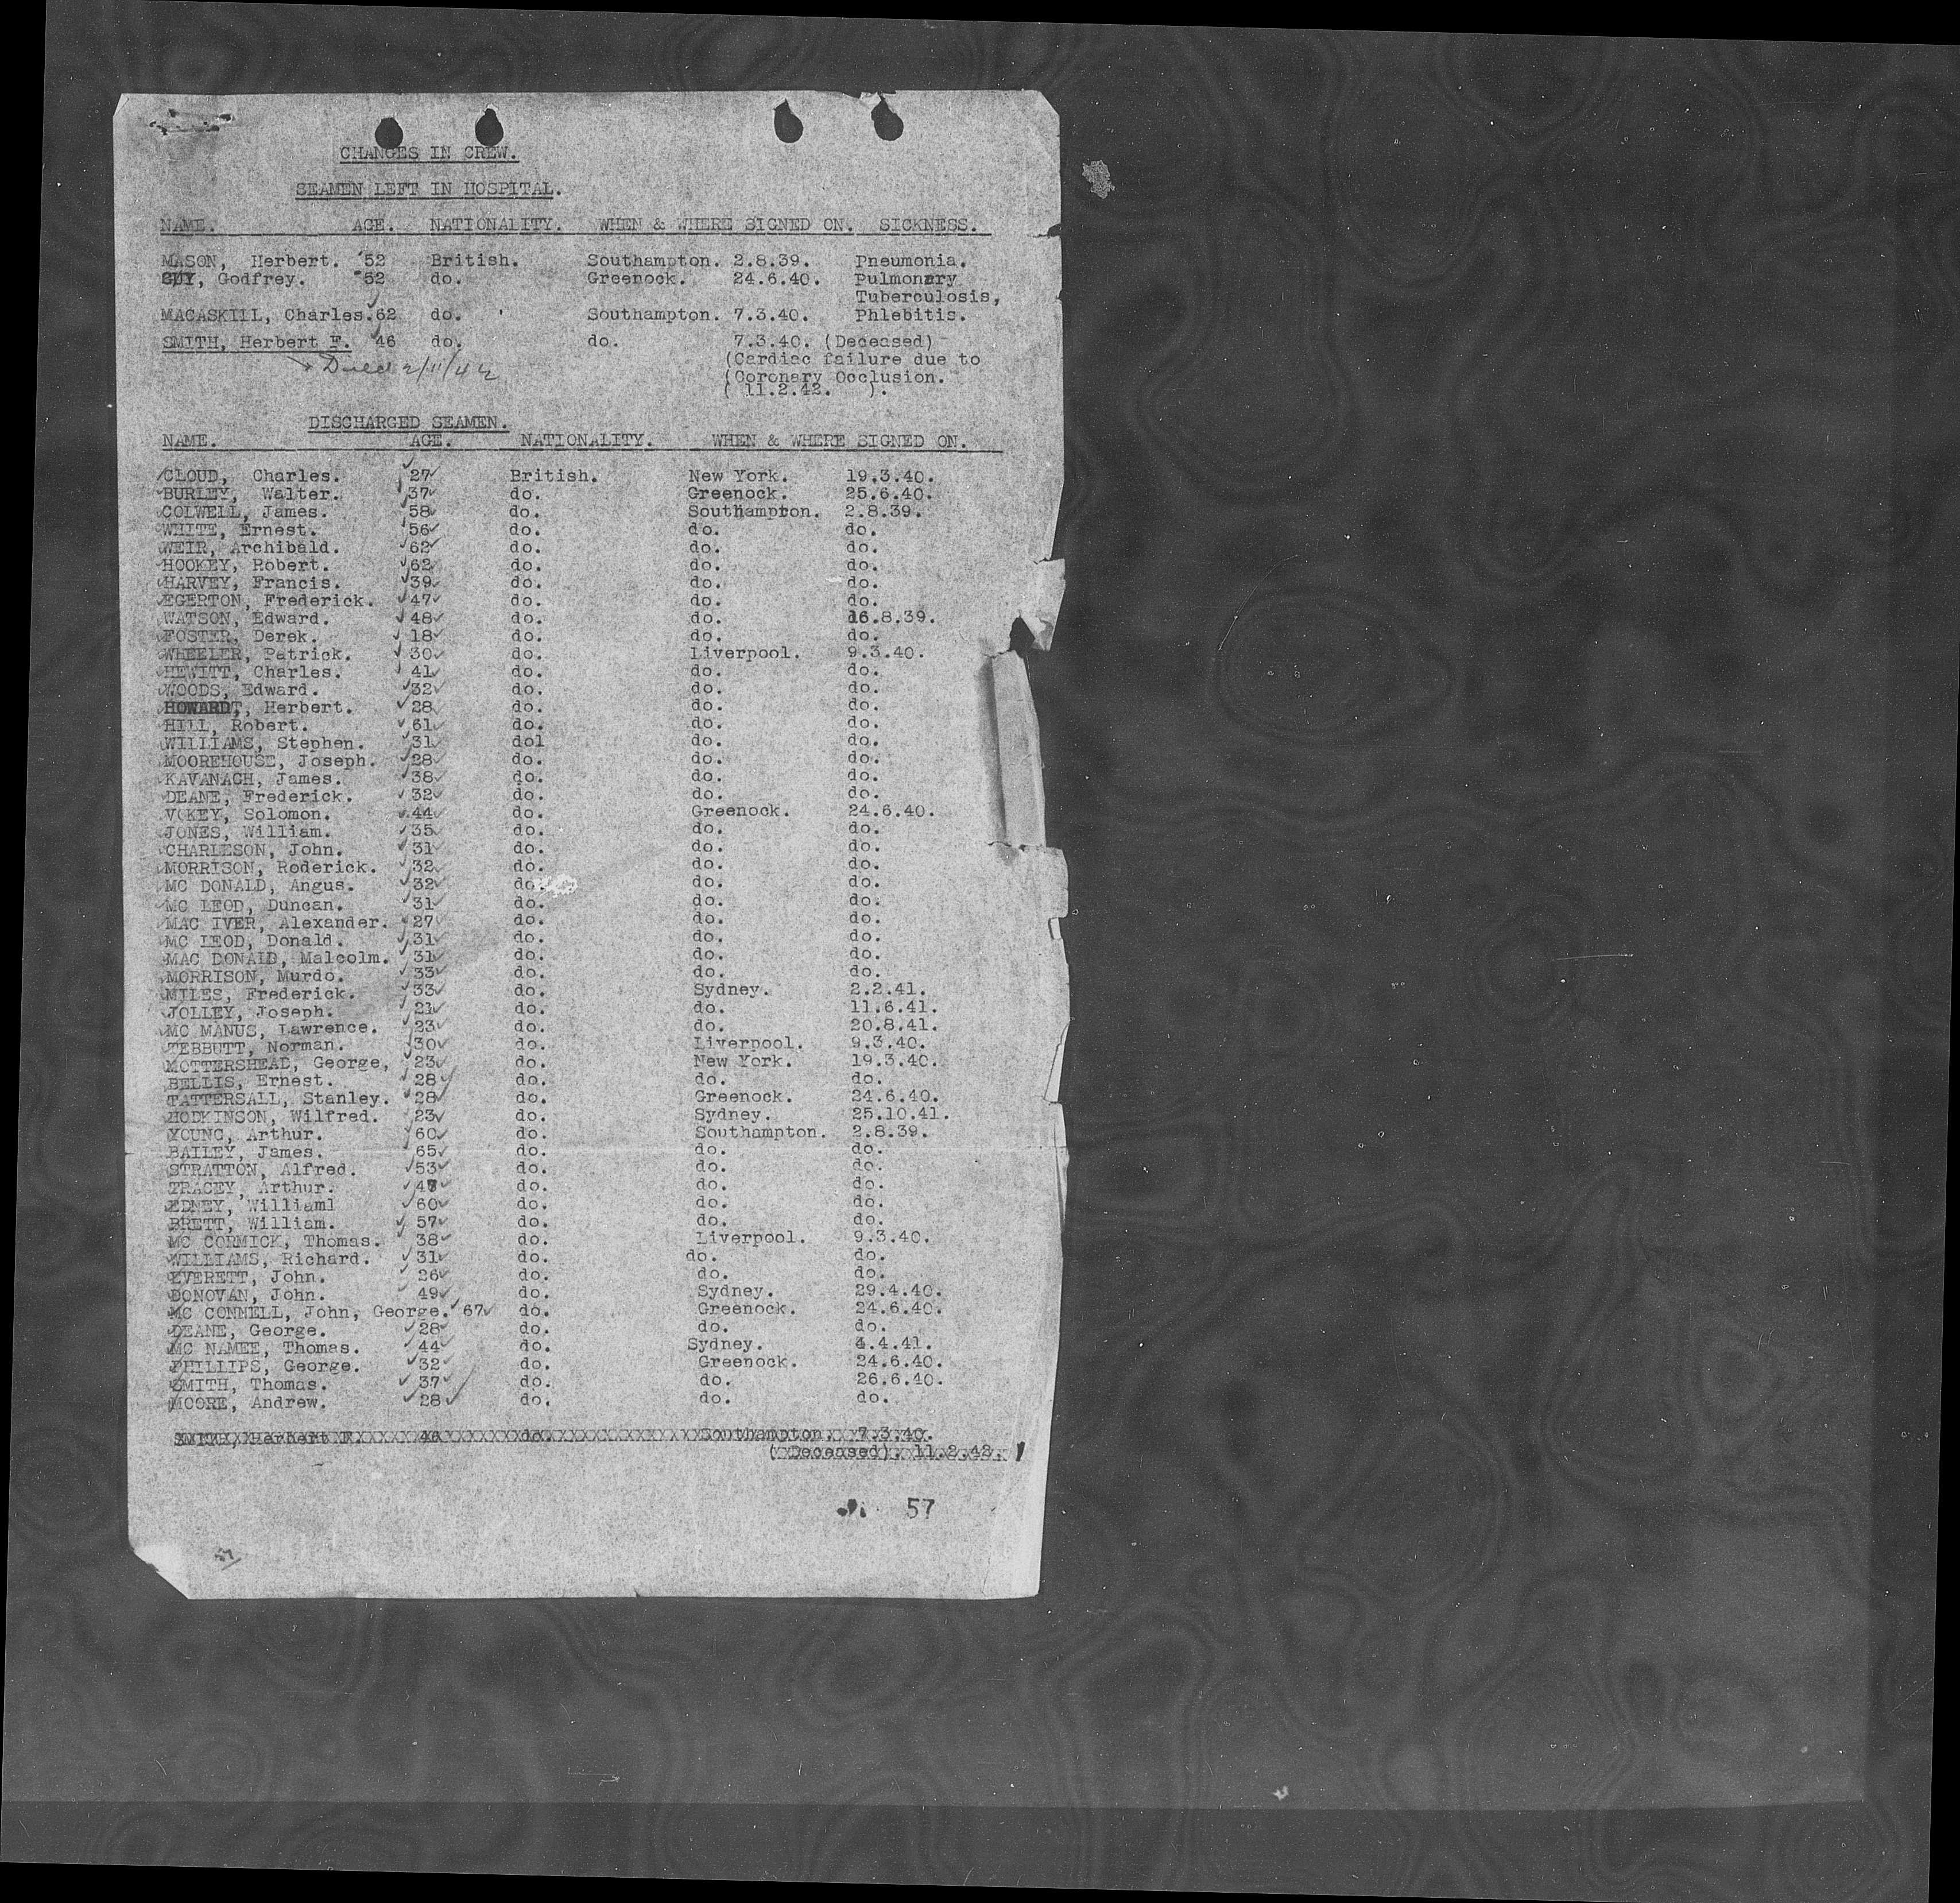 CHANGES IN CREW.
SEAMEN LEFT IN HOSPITAL.
NAME. AGE. NATIONALITY. WHEN & WHERE SIGNED ON. SICKNESS.
MASON, Herbert. 52 British. Southampton. 2.8.39. Pneumonia.
GUY, Godfrey. 52 do. Greenock. 24.6.40. Pulmonary
Tuberculosis,
MACASKILL, Charles. 62 do. Southampton. 7.3.40. Phlebitis.
SMITH, Herbert F. 46 do. do. 7.3.40. (Deceased)
(Cardiac failure due to
Died 2/11/42
(Coronary Occlusion.
( 11.2.42. ).
DISCHARGED SEAMEN.
NAME. AGE. NATIONALITY. WHEN & WHERE SIGNED ON.
CLOUD, Charles. 27 British. New York. 19.3.40.
BURLEY, Walter. 37 do. Greenock. 25.6.40.
COLWELL, James. 58 do. Southampton. 2.8.39.
WHITE, Ernest. 56 do. do. do.
WEIR, Archibald. 62 do. do. do.
HOOKEY, Robert. 62 do. do. do.
HARVEY, Francis. 39 do. do. do.
EGERTON, Frederick. 47 do. do. do.
WATSON, Edward. 48 do. do. 16.8.39.
FOSTER, Derek. 18 do. do. do.
WHEELER, Patrick. 30 do. Liverpool. 9.3.40.
HEWITT, Charles. 41 do. do. do.
WOODS, Edward. 32 do. do. do.
HOWARDT, Herbert. 28 do. do. do.
HILL, Robert. 61 do. do. do.
WILLIAMS, Stephen. 31 dol do. do.
MOOREHOUSE, Joseph. 28 do. do. do.
KAVANACH, James. 38 do. do. do.
DEANE, Frederick. 32 do. do. do.
VOKEY, Solomon. 44 do. Greenock. 24.6.40.
JONES, William. 35 do. do. do.
CHARLESON, John. 31 do. do. do.
MORRISON, Roderick. 32 do. do. do.
MC DONALD, Angus. 32 do. do. do.
MC LEOD, Duncan. 31 do. do. do.
MAC IVER, Alexander. 27 do. do. do.
MC LEOD, Donald. 31 do. do. do.
MAC DONALD, Malcolm. 31 do. do. do.
MORRISON, Murdo. 33 do. do. do.
MILES, Frederick. 33 do. Sydney. 2.2.41.
JOLLEY, Joseph. 21 do. do. 11.6.41.
MC MANUS, Lawrence. 23 do. do. 20.8.41.
TEBBUTT, Norman. 30 do. Liverpool. 9.3.40.
MOTTERSHEAD, George, 23 do. New York. 19.3.40.
BELLIS, Ernest. 28 do. do. do.
TATTERSALL, Stanley. 28 do. Greenock. 24.6.40.
HODKINSON, Wilfred. 23 do. Sydney. 25.10.41.
YOUNG, Arthur. 60 do. Southampton. 2.8.39.
BAILEY, James. 65 do. do. do.
STRATTON, Alfred. 53 do. do. do.
TRACEY, Arthur. 47 do. do. do.
EDNEY, Williaml 60 do. do. do.
BRETT, William. 57 do. do. do.
MC CORMICK, Thomas. 38 do. Liverpool. 9.3.40.
WILLIAMS, Richard. 31 do. do. do.
EVERETT, John. 26 do. do. do.
DONOVAN, John. 49 do. Sydney. 29.4.40.
MC CONNELL, John, George. 67 do. Greenock. 24.6.40.
DEANE, George. 28 do. do. do.
MC NAMEE, Thomas. 44 do. Sydney. 4.4.41.
PHILLIPS, George. 32 do. Greenock. 24.6.40.
SMITH, Thomas. 37 do. do. 26.6.40.
MOORE, Andrew. 28 do. do. do.
SMITH, Herbert F. 46 do. Southampton. 7.3.40.
(Deceased). 11.2.42.
57
57